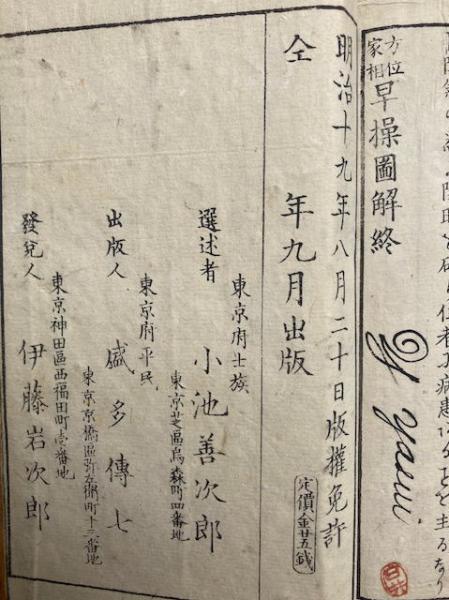 方位
家相
早操圖解終
Y Yasui
明治十九年八月二十日版權免許
仝 年九月出版
定價金廿五錢
東京府士族
選述者 小池善次郎
東京芝區烏森町四番地
東京府平民
出版人 盛多傳七
東京京橋區弥左衛町十三番地
發兌人 伊藤岩次郎
東京神田區西福田町壱番地